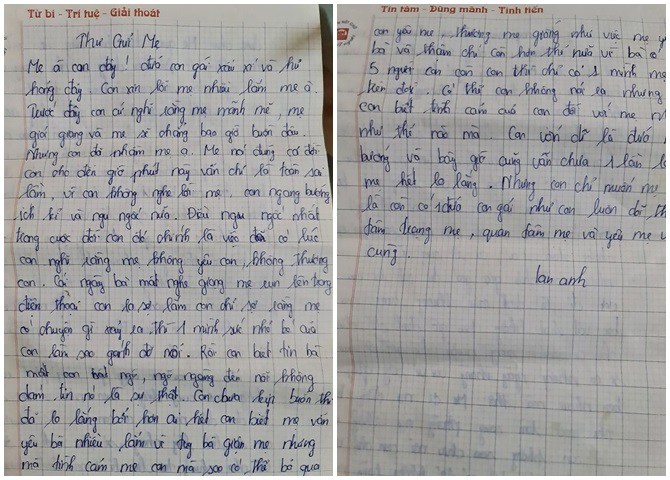 Từ bi - Trí tuệ - Giải thoát
Thư Gửi Mẹ
Mẹ à con đây! đứa con gái xấu xí và hư
hỏng đây. Con xin lỗi mẹ nhiều lắm mẹ à.
Trước đây con cứ nghĩ rằng mẹ mạnh mẽ, mẹ
giỏi giang và mẹ sẽ chẳng bao giờ buồn đâu.
Nhưng con đã nhầm mẹ ạ. Mẹ nói đúng cả đời
con cho đến giờ phút này vẫn chỉ là toàn sai
lầm, vì con không nghe lời mẹ. con ngang bướng
ích kỉ và ngu ngốc nữa. Điều ngu ngốc nhất
trong cuộc đời con đó chính là việc đã có lúc
con nghĩ rằng mẹ không yêu con, không thương
con. Cái ngày bà mất nghe giọng mẹ run lên trong
điện thoại con lo sợ lắm con chỉ sợ rằng mẹ
có chuyện gì xảy ra thì 1 mình sức nhỏ bé của
con làm sao gánh đỡ nổi. Rồi con biết tin bà
mất con bất ngờ, ngỡ ngàng đến nỗi không
dám tin nó là sự thật. Con chưa kịp buồn thì
đã lo lắng bởi hơn ai hết con biết mẹ vẫn
yêu bà nhiều lắm vì tuy bà giận mẹ nhưng
mà tình cảm mẹ con mà sao có thể bỏ qua
Tín tâm - Dũng mãnh - Tinh tiến
con yêu mẹ, thương mẹ giống như việc mẹ y
bà và thậm chí còn hơn thế nữa vì bà có
5 người con còn con thì chỉ có 1 mình mẹ
trên đời. Có thể con không nói ra nhưng
con biết tình cảm của con đối với mẹ n
như thế nào mà. Con vốn dĩ là đứa
bướng và bây giờ cũng vẫn chưa 1 lần l
mẹ hết lo lắng. Nhưng con chỉ muốn mẹ
là còn có 1 đứa con gái như con luôn dõi th
tâm trạng mẹ, quan tâm mẹ và yêu mẹ v
cùng.
lan anh